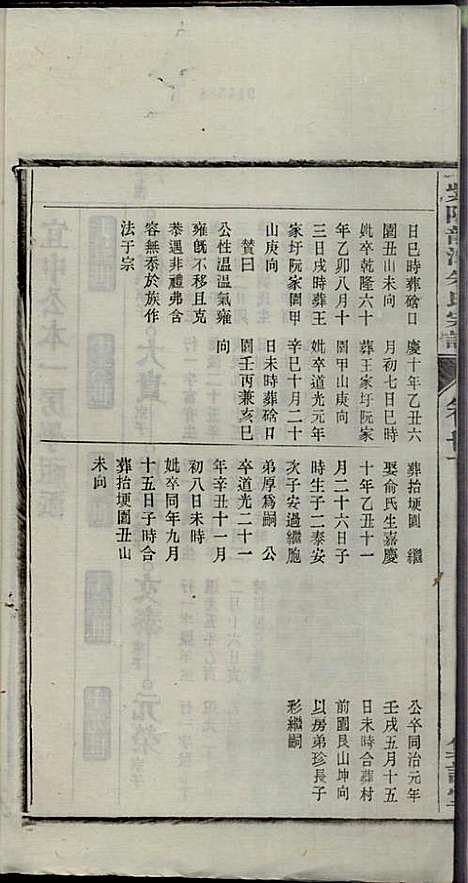 日巳時葬硲日
園丑山未向
妣卒乾隆六十
年乙卯八月十
三日戌時葬王
家圩阮家園甲
山庚向
贊曰
公性温温氣雍
雍旣不移且克
恭遇非禮弗含
容無忝於族作
法于宗
慶十年乙丑六
月初七日巳時
葬王家圩阮家
園甲山庚向
妣卒道光元年
辛巳十月二十
日未時葬硲日
園壬丙兼亥巳
向
葬抬埂園　繼
娶俞氏生嘉慶
十年乙丑十一
月二十六日子
時生子二泰安
次子安過繼胞
弟厚爲嗣　公
卒道光二十一
年辛丑十一月
初八日未時
妣卒同年九月
十五日子時合
葬抬埂園丑山
未向
公卒同治元年
壬戌五月十五
日未時合葬村
前園艮山坤向
以房弟珍長子
彩繼嗣